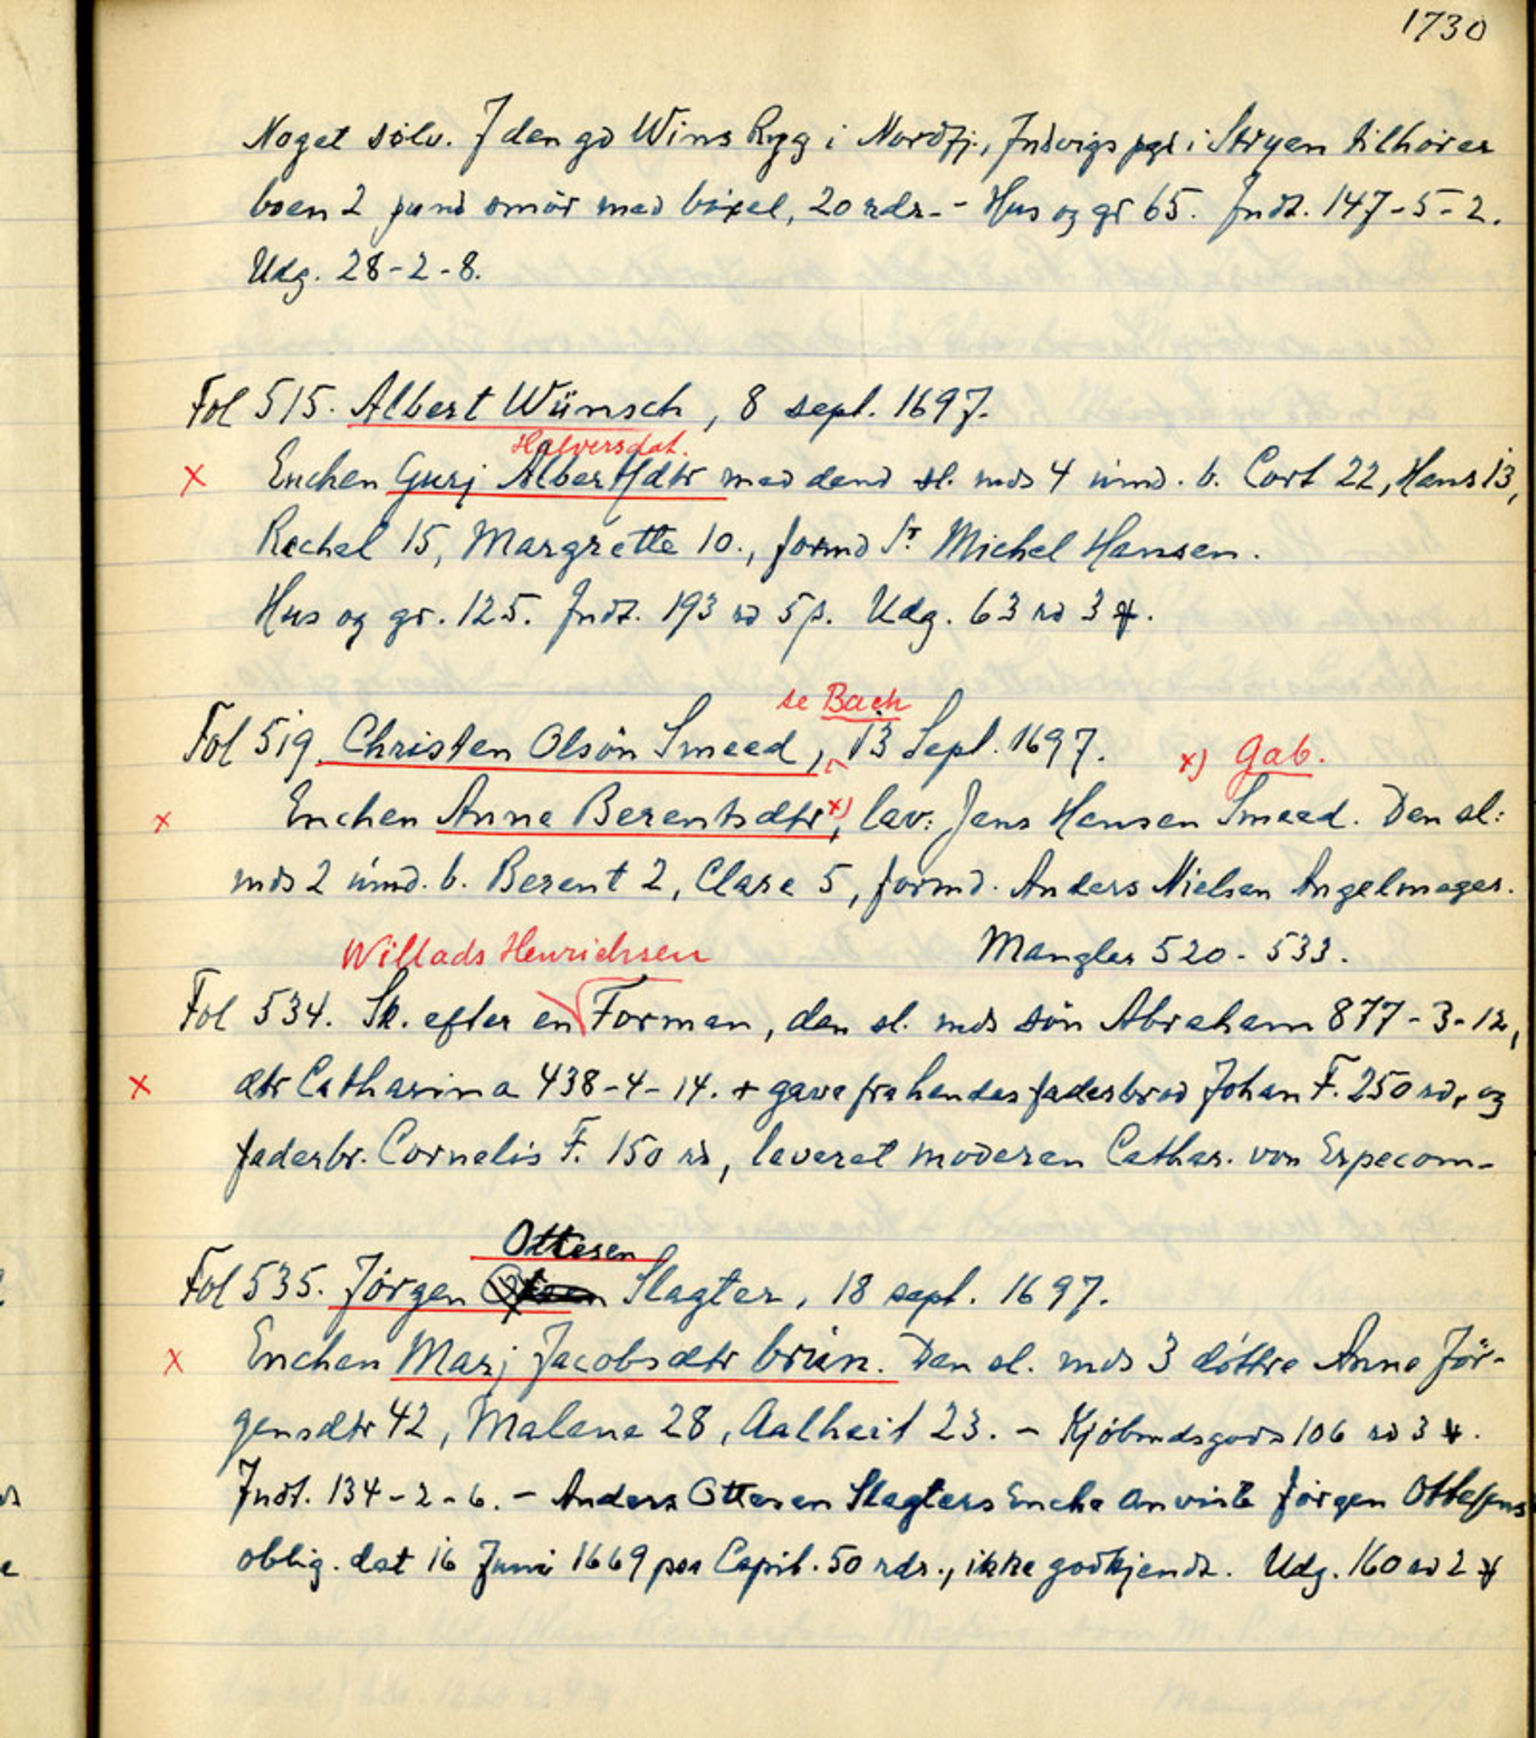 1730
Noget sölv. I den gd Wins Ryg i Nordfj., Indvigs pgd i Stryen tilhörer
boen 2 pund smör med böxel, 20 rdr. - Hus og gr 65. Indt. 147-5-2.
Udg. 28-2-8.
Fol 515. Albert Wünsch, 8 sept. 1697.
Halversdat.
x Enchen Gurj Albertsdtr med dend sl. mds 4 umd. b. Cort 22, Hans 13,
Rachel 15, Margrette 10., formd Sr. Michel Hansen.
Hus og gr. 125. Indt. 193 rd 5 s. Udg. 63 rd 3 ж.
se Bach
Fol 519. Christen Olsön Smeed, 13 Sept. 1697. x) Gab.
x Enchen Anne Berentsdtr x), lav: Jens Hansen Smeed. Den sl:
mds 2 umd. b. Berent 2, Clare 5, formd. Anders Nielsen Angelmager.
Willads Henrichsen Mangler 520 - 533.
Fol 534. Sk. efter en Forman, den sl. mds sön Abraham 877-3-12,
x dtr Catharina 438-4-14. + gave fra hendes faderbrod Johan F. 250 rd, og
faderbr. Cornelis F. 150 rd, leveret moderen Cathar. von Erpecom-
Ottesen
Fol 535. Jörgen Slagter, 18 sept. 1697.
x Enchen Marj Jacobsdtr brun. Den sl. mds 3 döttre Anne Jör-
gensdtr 42, Malene 28, Aalheit 23. - Kjöbmdsgods 106 rd 3 ж.
Indt. 134-2-6. - Anders Ottesen Slagters Enche anviste Jörgen Ottesens
oblig. dat 16 Juni 1669 paa Capit. 50 rdr., ikke godkjendt. Udg. 160 rd 2 ж